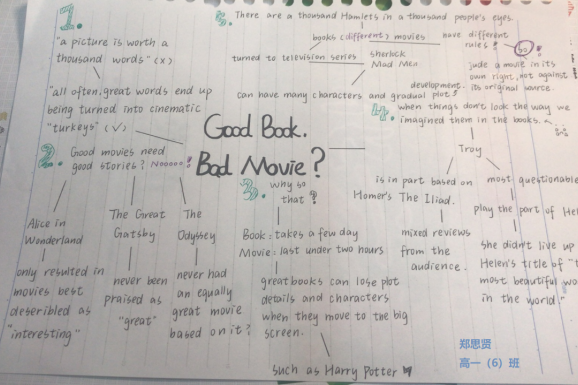 1.
"a picture is worth a
thousand words" (×)
"all often, great words end up
being turned into cinematic
"turkeys" (√)
Good Book.
Bad Movie?
2.
Good movies need
good stories? Nooooo!
Alice in
Wonderland
only resulted in
movies best
deseribled as
"interesting"
The Great
Gatsby
never been
praised as
"great"
The
Odyssey
never had
an equally
great movie
based on it?
3.
why so
that?
Book: takes a few day
Movie: last under two hours
great books can lose plot
details and characters
when they move to the big
screen.
such as Harry Potter
4.
when things don't look the way we
imagined them in the books.
Troy
is in part based on
Homer's The Iliad.
mixed reviews
from the
audience.
most questionable
play the part of Hel
she didn't live up
Helen's title of "t
most beautiful wo
in the world."
5.
There are a thousand Hamlets in a thousand people's eyes.
books (different) movies
have different
rules!
turned to television series
sherlock
Mad Men
can have many characters and gradual plot
development.
So
jude a movie in its
own right, not against
its original source.
郑思贤
高一（6）班